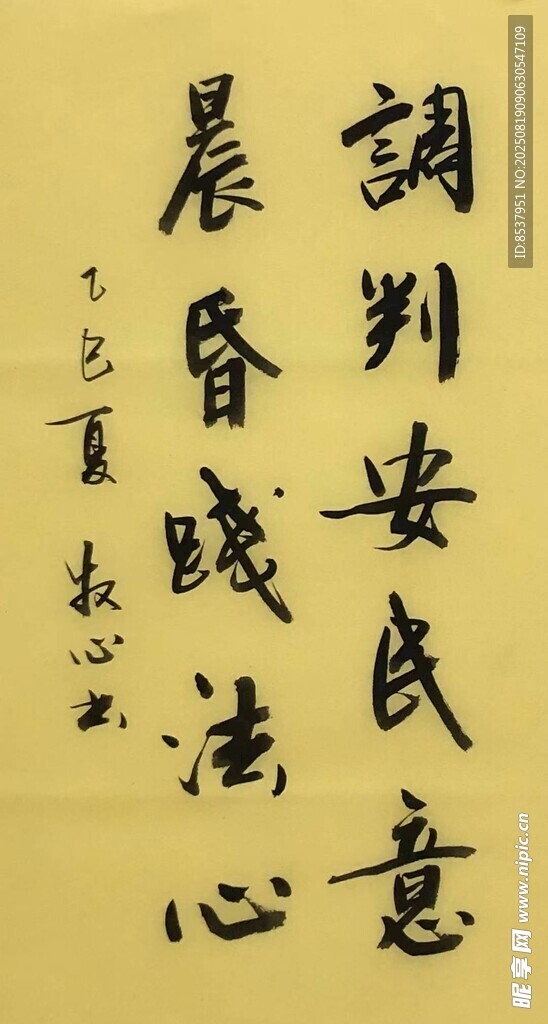 調判安民意
晨昏踐法心
乙巳夏 牧心书
ID:8537951 NO:20250819090630547109
昵享网 www.nipic.cn